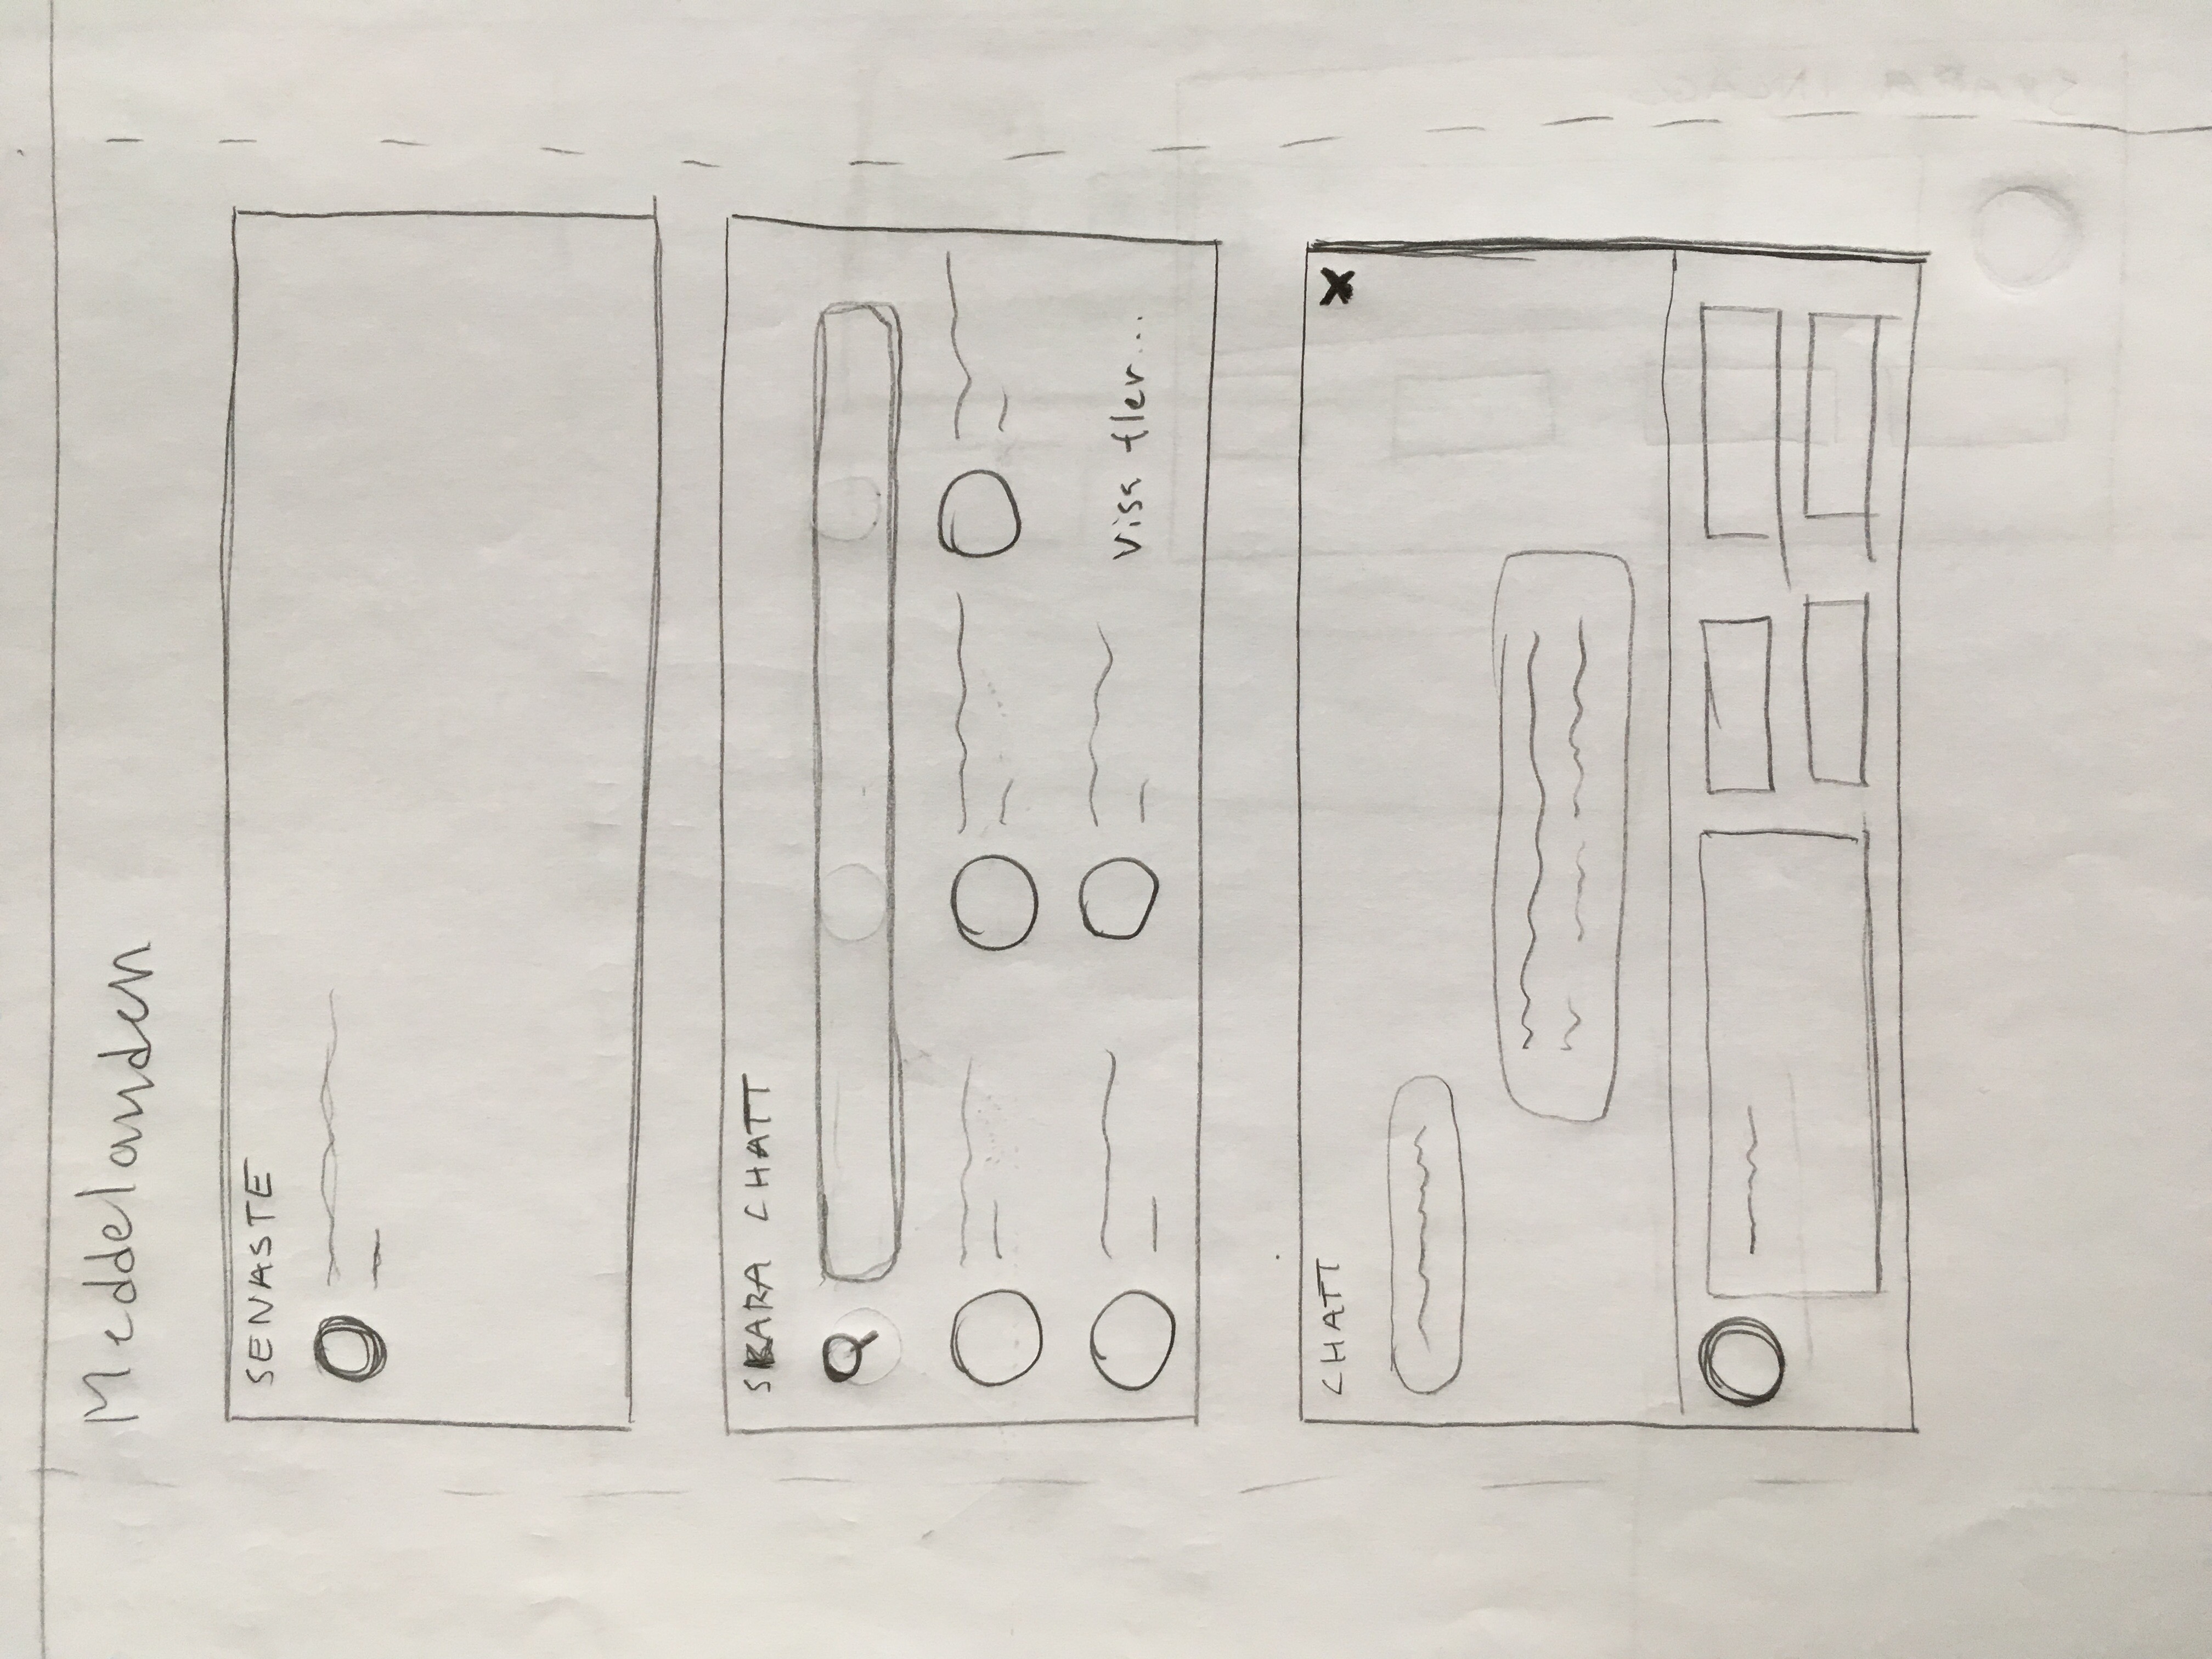 Meddelanden
SENASTE
SKARA CHATT
Visa fler...
CHATT